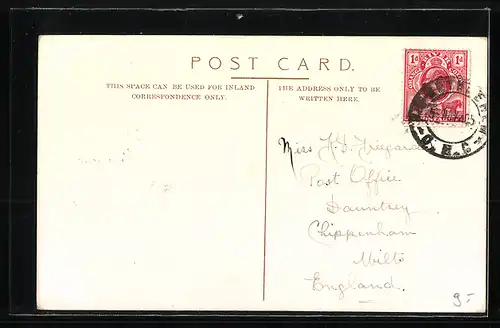 POST CARD.
THIS SPACE CAN BE USED FOR INLAND
CORRESPONDENCE ONLY.
THE ADDRESS ONLY TO BE
WRITTEN HERE.
1d 1d
O.R.C
Miss
Post Office
Dauntsey
Chippenham
Wilts
England.
9.-